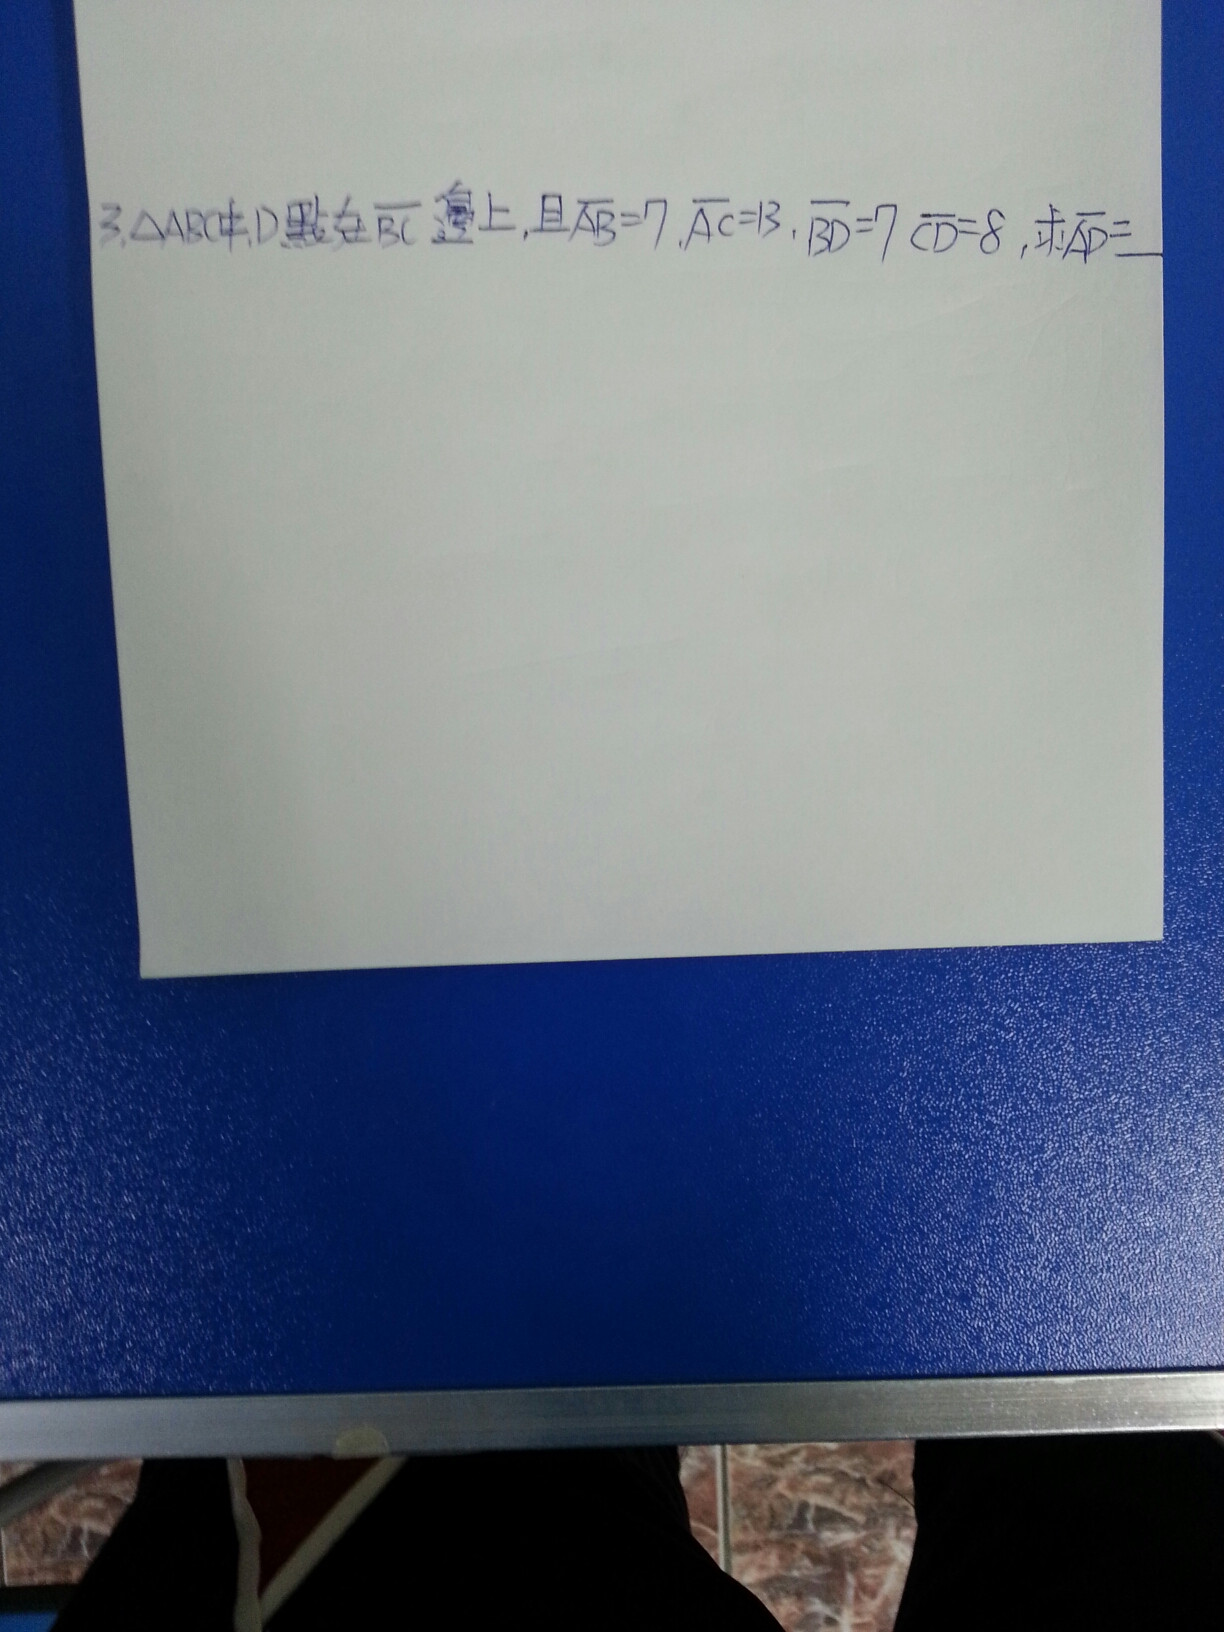 3.△ABC中,D點在BC邊上,且AB=7,AC=13,BD=7 CD=8,求AD=__